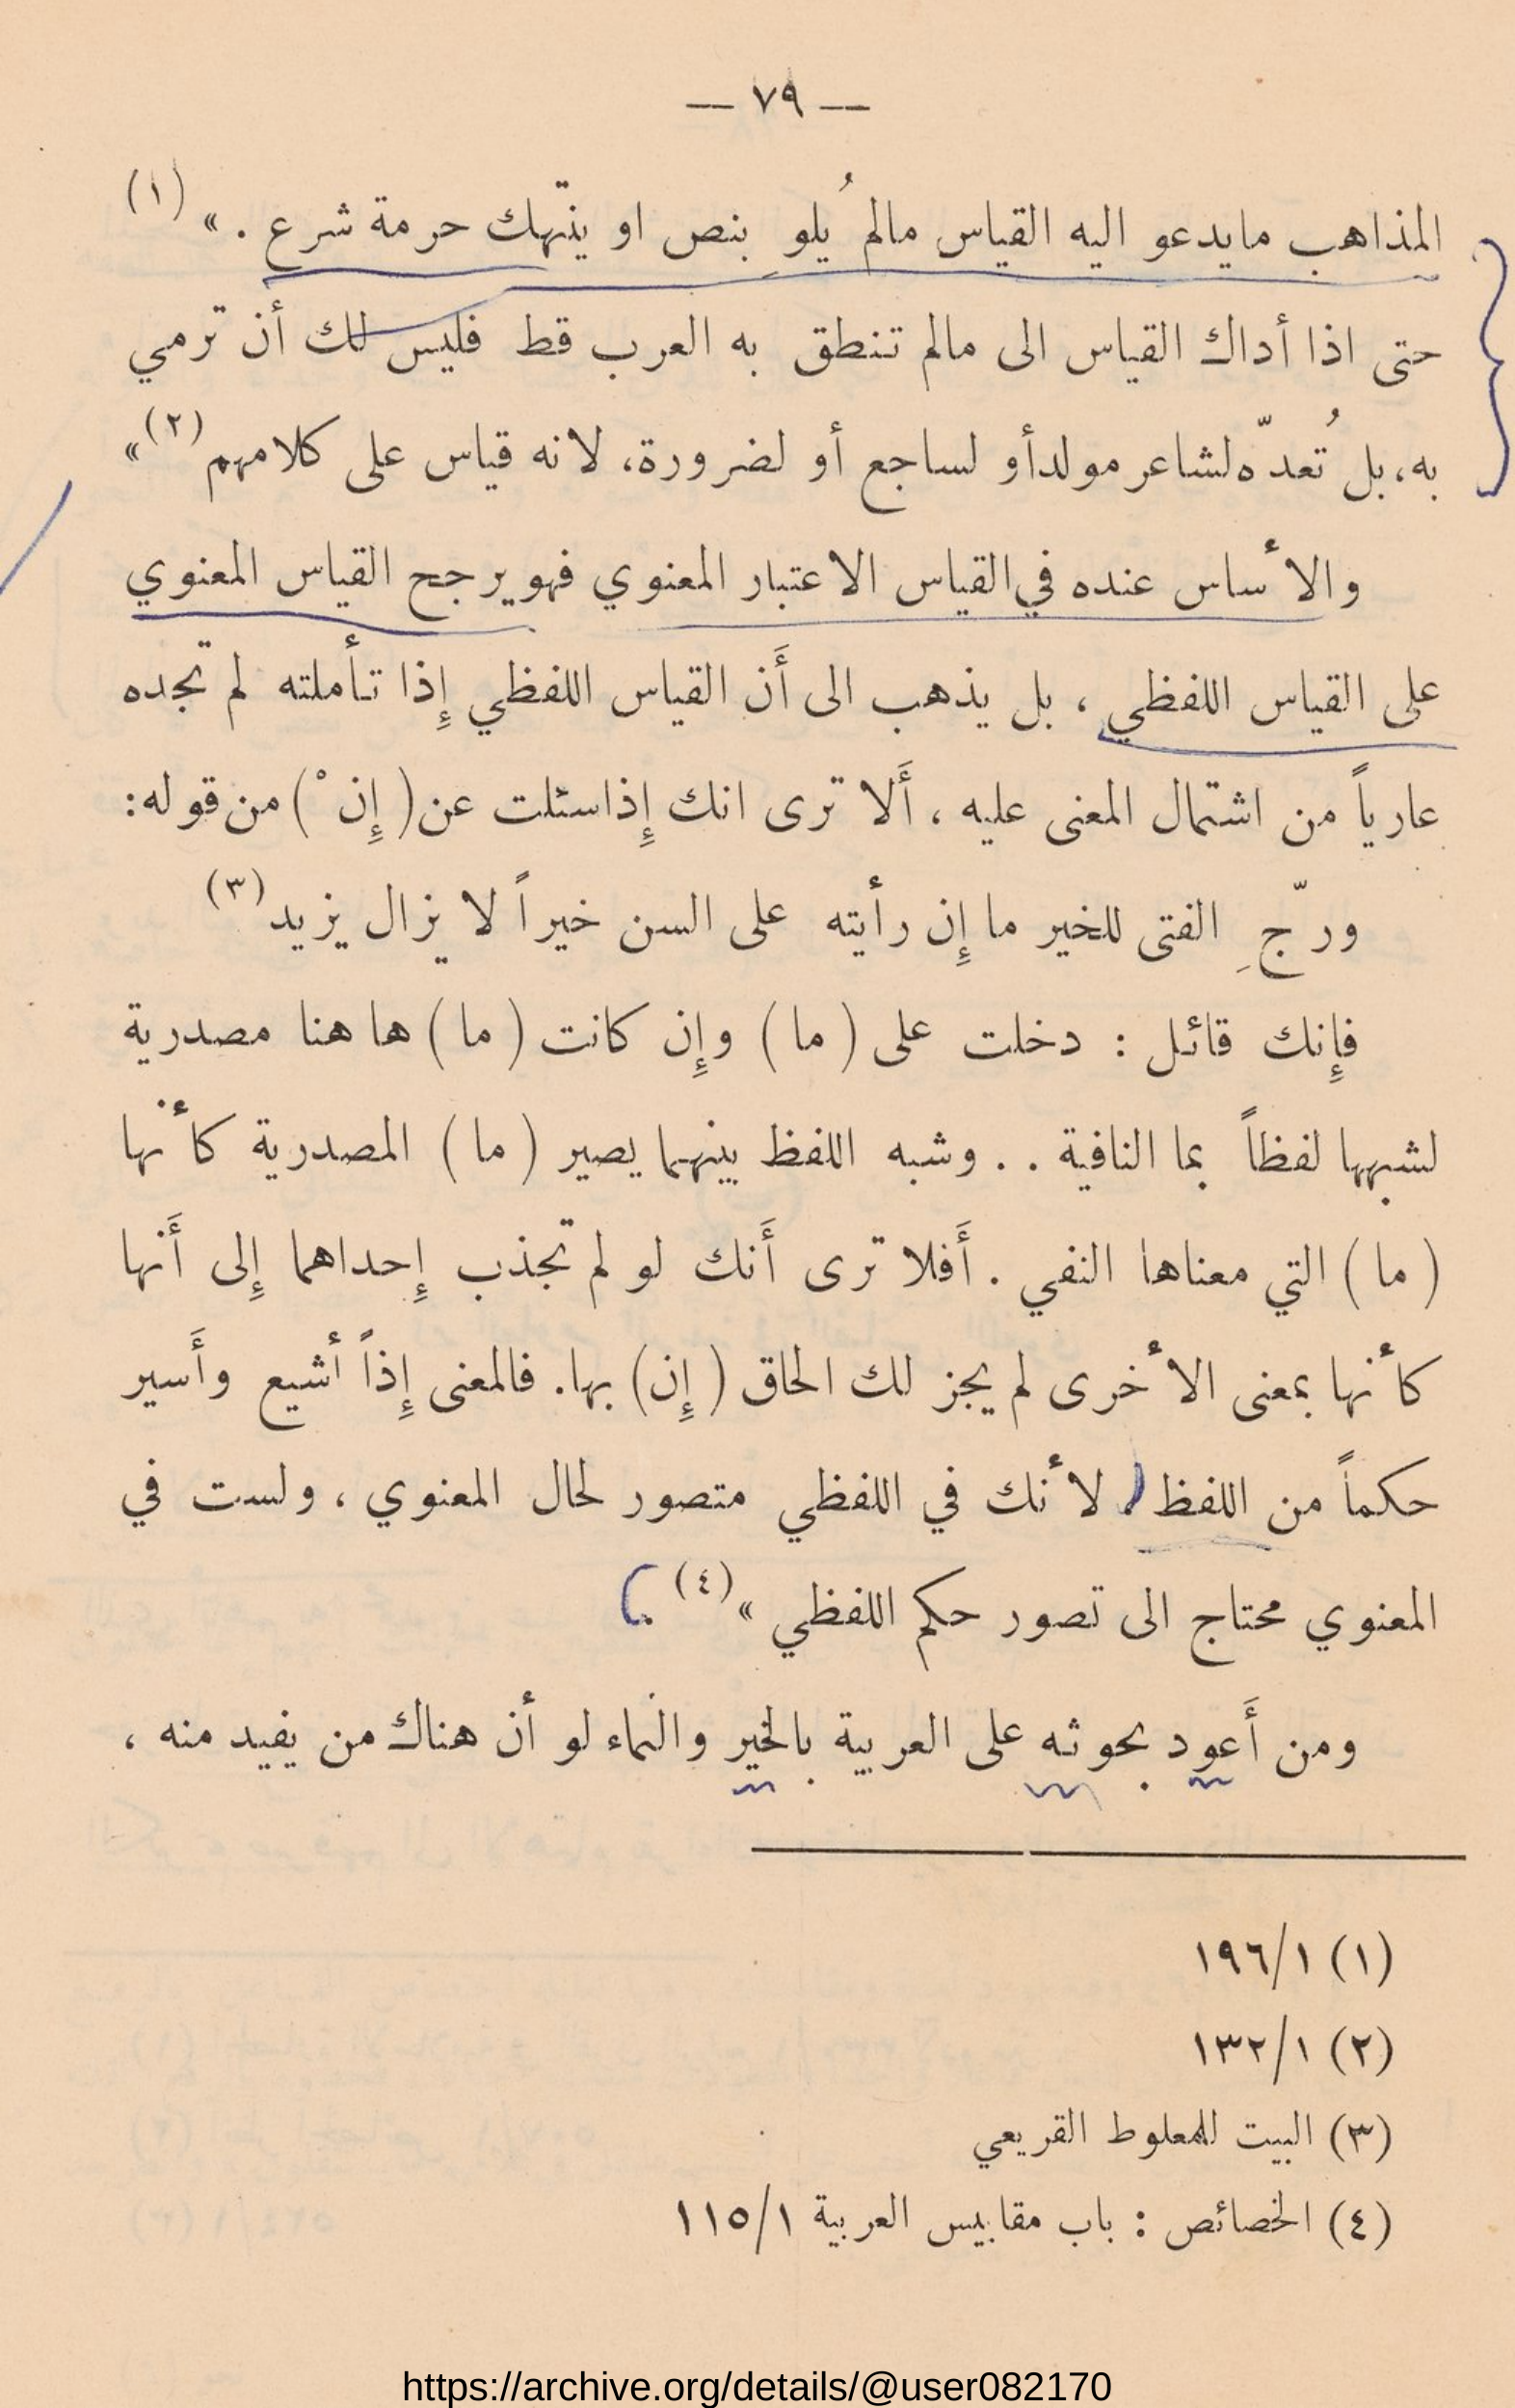 — ٧٩ —
المذاهب مايدعو اليه القياس مالم يُلوِ بنص او ينتّهك حرمة شرع . » (١)
حتى اذا أداك القياس الى مالم تنطق به العرب قط فليس لك أن ترمي
به، بل تُعدّه لشاعر مولدأو لساجع أو لضرورة، لانه قياس على كلامهم (٢) »
والأساس عنده في القياس الاعتبار المعنوي فهو يرجح القياس المعنوي
على القياس اللفظي ، بل يذهب الى أَن القياس اللفظي إِذا تأملته لم تجده
عارياً من اشتمال المعنى عليه ، أَلا ترى انك إِذاسئلت عن ( إِنْ ) من قوله:
ورّجِ الفتى للخير ما إِن رأيته على السن خيراً لا يزال يزيد (٣)
فإِنك قائل : دخلت على ( ما ) وإِن كانت ( ما ) ها هنا مصدرية
لشبهها لفظاً بما النافية . . وشبه اللفظ بينهما يصير ( ما ) المصدرية كأنها
( ما ) التي معناها النفي . أَفلا ترى أَنك لو لم تجذب إِحداهما إِلى أَنها
كأنها بمعنى الأخرى لم يجز لك الحاق ( إِن ) بها. فالمعنى إِذاً أشيع وأَسير
حكماً من اللفظ لأنك في اللفظي متصور لحال المعنوي ، ولست في
المعنوي محتاج الى تصور حكم اللفظي » (٤) .
ومن أَعود بحوثه على العربية بالخير والنماء لو أن هناك من يفيد منه ،
(١) ١٩٦/١
(٢) ١٣٢/١
(٣) البيت للمعلوط القريعي
(٤) الخصائص : باب مقاييس العربية ١١٥/١
https://archive.org/details/@user082170